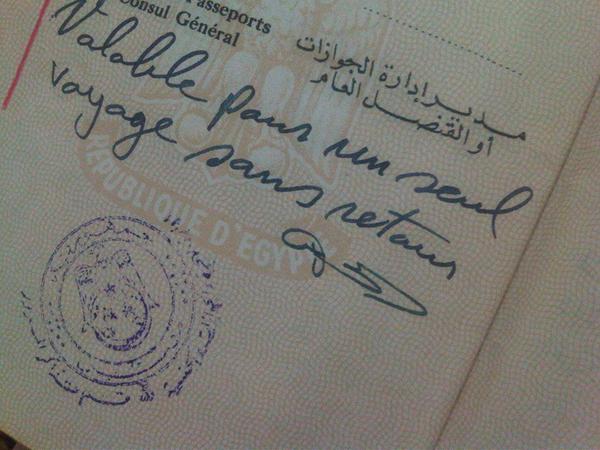 Passeports
Consul Général
مدير إدارة الجوازات
أو القنصل العام
Valable pour un seul
voyage sans retour
REPUBLIQUE D'EGYPTE